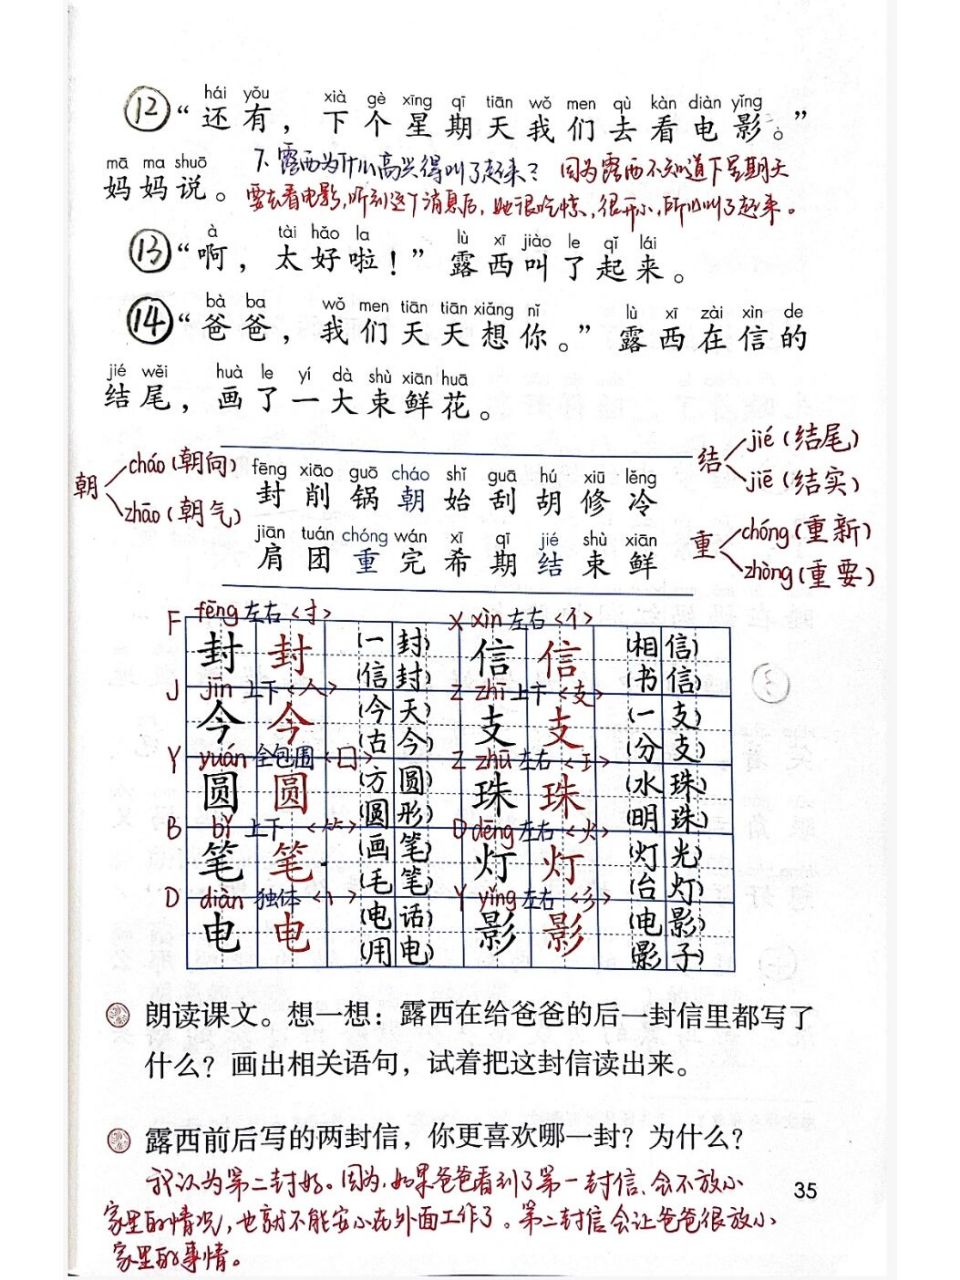 hái yǒu xià gè xīng qī tiān wǒ men qù kàn diàn yǐng
12 “还有，下个星期天我们去看电影。”
mā ma shuō
妈妈说。
7. 露西为什么高兴得叫了起来？ 因为露西不知道下星期天
要去看电影，听到这个消息后，她很吃惊，很开心，所以叫了起来。
à tài hǎo la lù xī jiào le qǐ lái
13 “啊，太好啦！”露西叫了起来。
bà ba wǒ men tiān tiān xiǎng nǐ lù xī zài xìn de
14 “爸爸，我们天天想你。”露西在信的
jié wěi huà le yí dà shù xiān huā
结尾，画了一大束鲜花。
朝 cháo（朝向）
zhāo（朝气）
fēng xiāo guō cháo shǐ guā hú xiū lěng
封 削 锅 朝 始 刮 胡 修 冷
jiān tuán chóng wán xī qī jié shù xiān
肩 团 重 完 希 期 结 束 鲜
结 jié（结尾）
jiē（结实）
重 chóng（重新）
zhòng（重要）
F fēng 左右〈寸〉
封 封（一封）
（信封）
X xìn 左右〈亻〉
信 信（相信）
（书信）
J jīn 上下〈人〉
今 今（今天）
（古今）
Z zhī 上下〈支〉
支 支（一支）
（分支）
Y yuán 全包围〈囗〉
圆 圆（方圆）
（圆形）
Z zhū 左右〈王〉
珠 珠（水珠）
（明珠）
B bǐ 上下〈⺮〉
笔 笔（画笔）
（毛笔）
D dēng 左右〈火〉
灯 灯（灯光）
（台灯）
D diàn 独体
电 电（电话）
（用电）
Y yǐng 左右〈彡〉
影 影（电影）
（影子）
朗读课文。想一想：露西在给爸爸的后一封信里都写了
什么？画出相关语句，试着把这封信读出来。
露西前后写的两封信，你更喜欢哪一封？为什么？
我认为第二封好。因为，如果爸爸看到了第一封信、会不放心
家里的情况，也就不能安心在外面工作了。第二封信会让爸爸很放心
家里的事情。
35